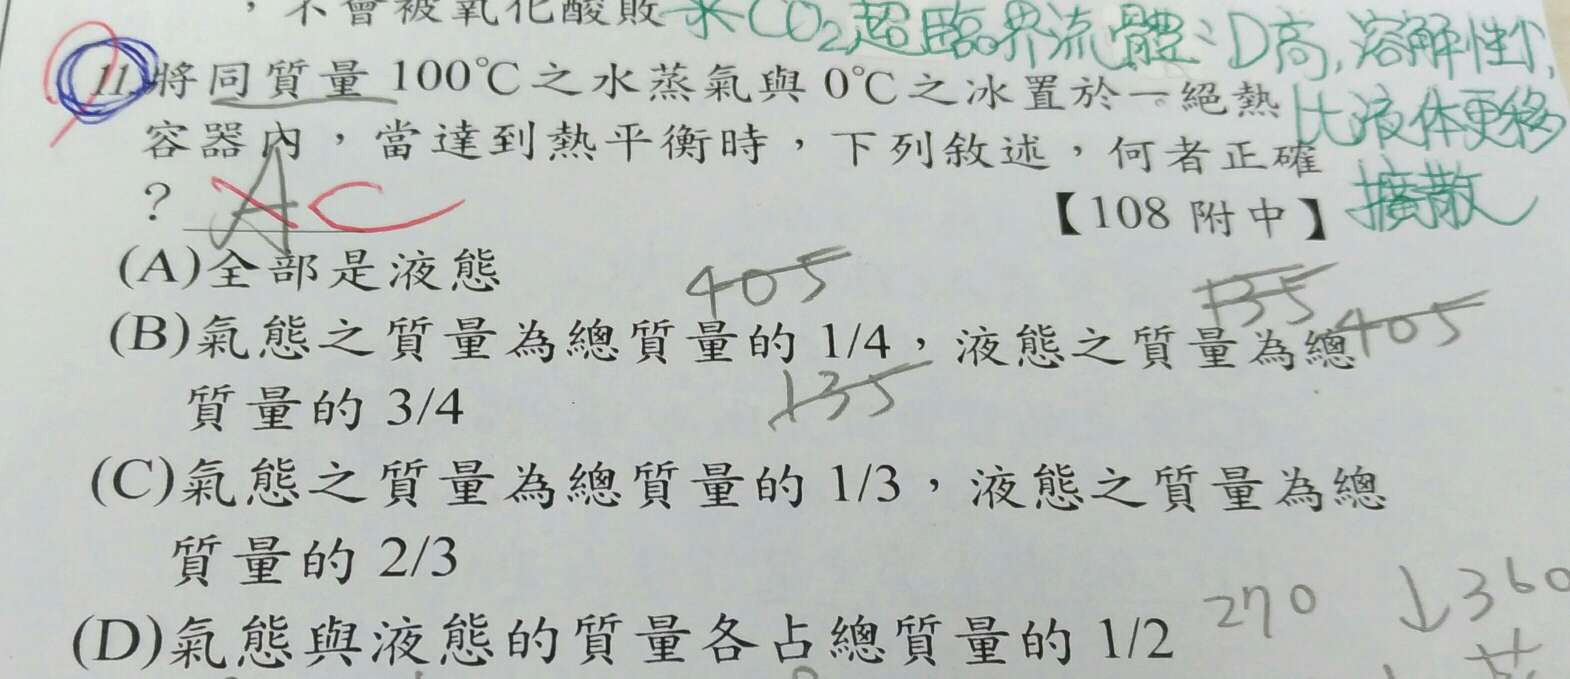 ，不會被氧化酸敗 米CO2超臨界流體：D高，溶解性↑，
11.將同質量 100℃之水蒸氣與 0℃之冰置於一絕熱 比液体更移
容器內，當達到熱平衡時，下列敘述，何者正確 擴散
？ A C 【108 附中】
(A)全部是液態
405 135
(B)氣態之質量為總質量的 1/4，液態之質量為總 405
135
質量的 3/4
(C)氣態之質量為總質量的 1/3，液態之質量為總
質量的 2/3
270 ↓360
(D)氣態與液態的質量各占總質量的 1/2